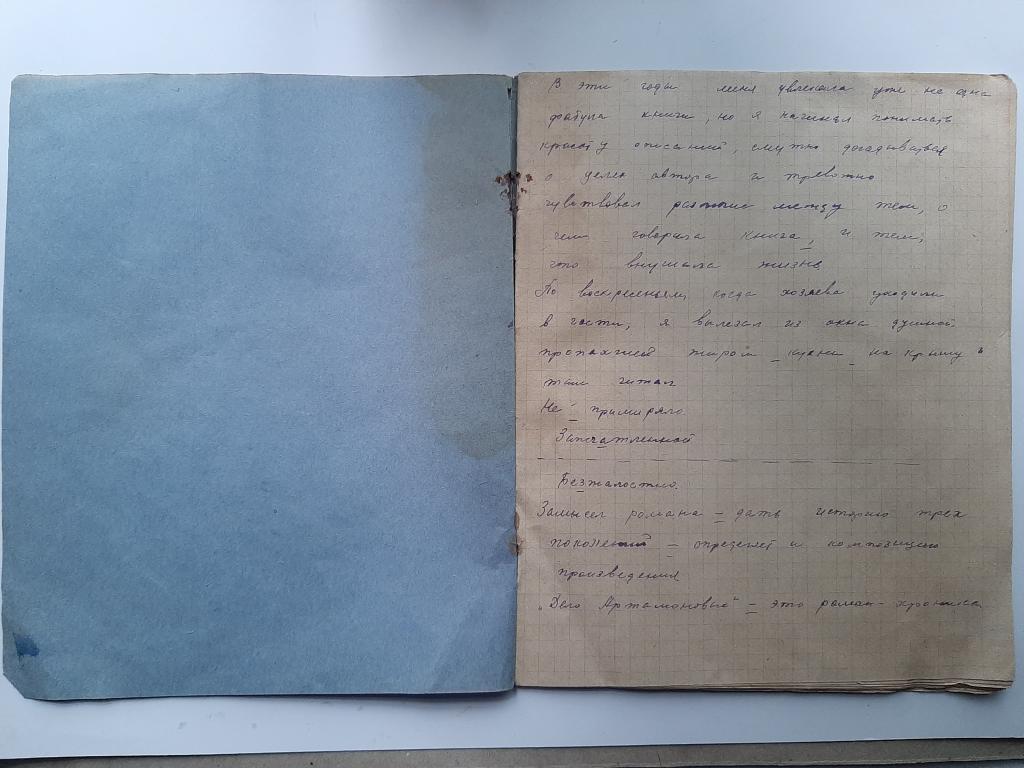 В эти годы меня увлекала уже не одна
фабула книги, но я начинал понимать
красоту описаний, смутно догадываться
о целях автора и тревожно
чувствовал разлитие между тем, о
чем говорила книга, и тем,
что внушала жизнь
По воскресеньям, когда хозяева уходили
в гости, я вылезал из окна душной
пропахшей жиром кухни на крышу и
там читал
Не примиряло.
Запечатленной
Безжалостно.
Замысел романа – дать историю трех
поколений – определяет и композицию
произведения
„Дело Артамоновых" – это роман-хроника